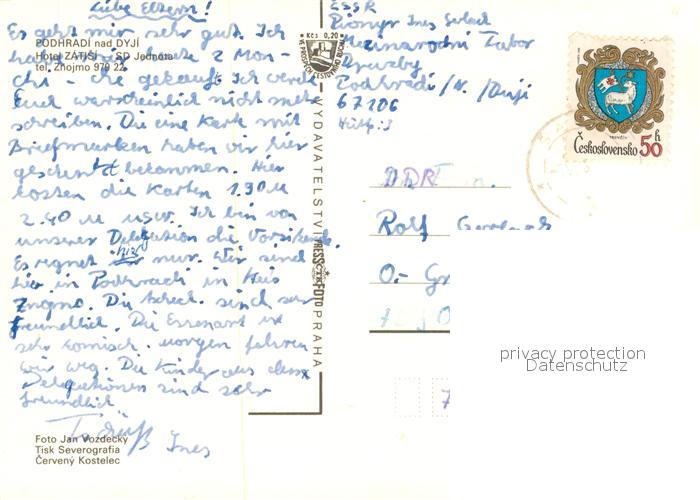 Liebe Eltern!
Es geht mir sehr gut. Ich
habe heute 2 Mon-
chi - che gekauft. Ich werde
Euch warscheinlich nicht mehr
schreiben. Die eine Karte mit
Briefmarken haben wir hier
geschenkt bekommen. Hier
kosten die Karten 1.90 M
2.40 M usw. Ich bin von
unserer Delegation die Vorsitzende.
Es regnet hier nur. Wir sind
hier in Podhradi in
Znojmo. Die tschech. sind sehr
freundlich. Die Essenart ist
sehr komisch. morgen fahren
wir weg. Die Kinder aus
Delegationen sind sehr
freundlich
Tschüß Ines
PODHRADÍ nad DYJÍ
Hotel ZÁTIŠÍ — SD Jednota
tel. Znojmo 979 22
Foto Jan Vozdecký
Tisk Severografia
Červený Kostelec
Kčs 0,20
VYDAVATELSTVÍ PRESSFOTO PRAHA
ČSSR
Pionyr Ines
Mezinarodni Tabor
Druzby
Podhradi /N. /Dyji
67106
DDR
Rolf
O.- Gr
7
Československo 50 h
privacy protection
Datenschutz